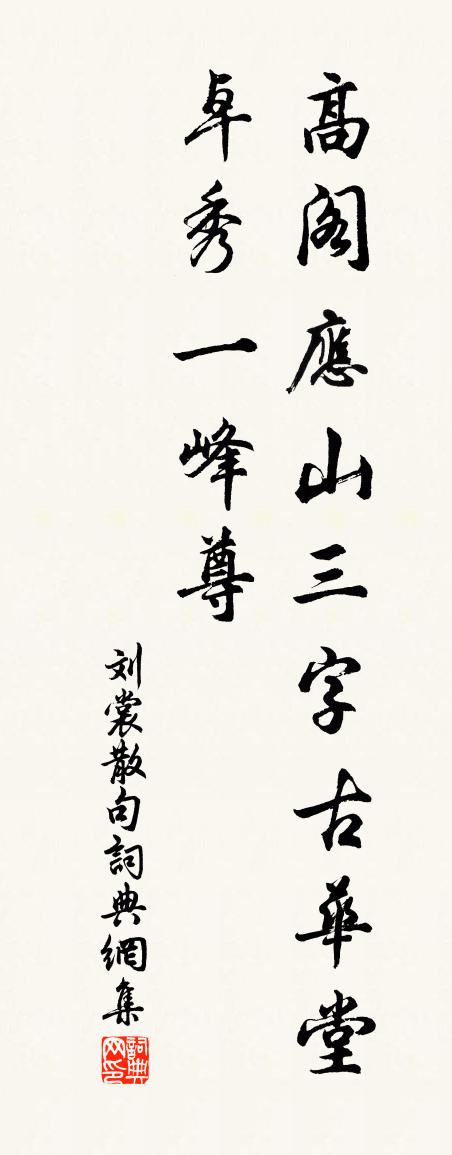 高阁應山三字古華堂
卓秀一峰尊
刘裳散句詞典網集
詞典
网印